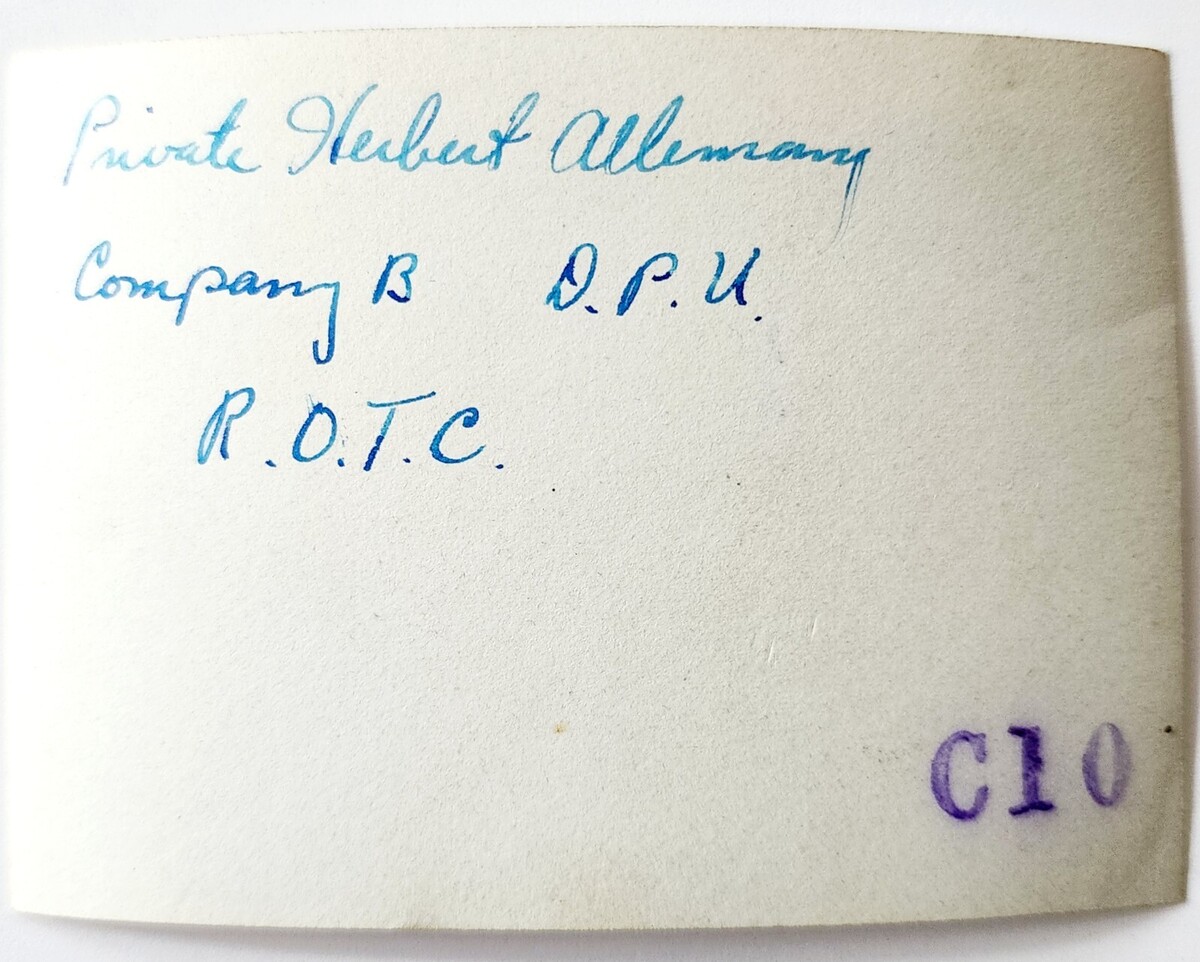 Private Herbert Allemang
Company B D.P.U.
R.O.T.C.
C10